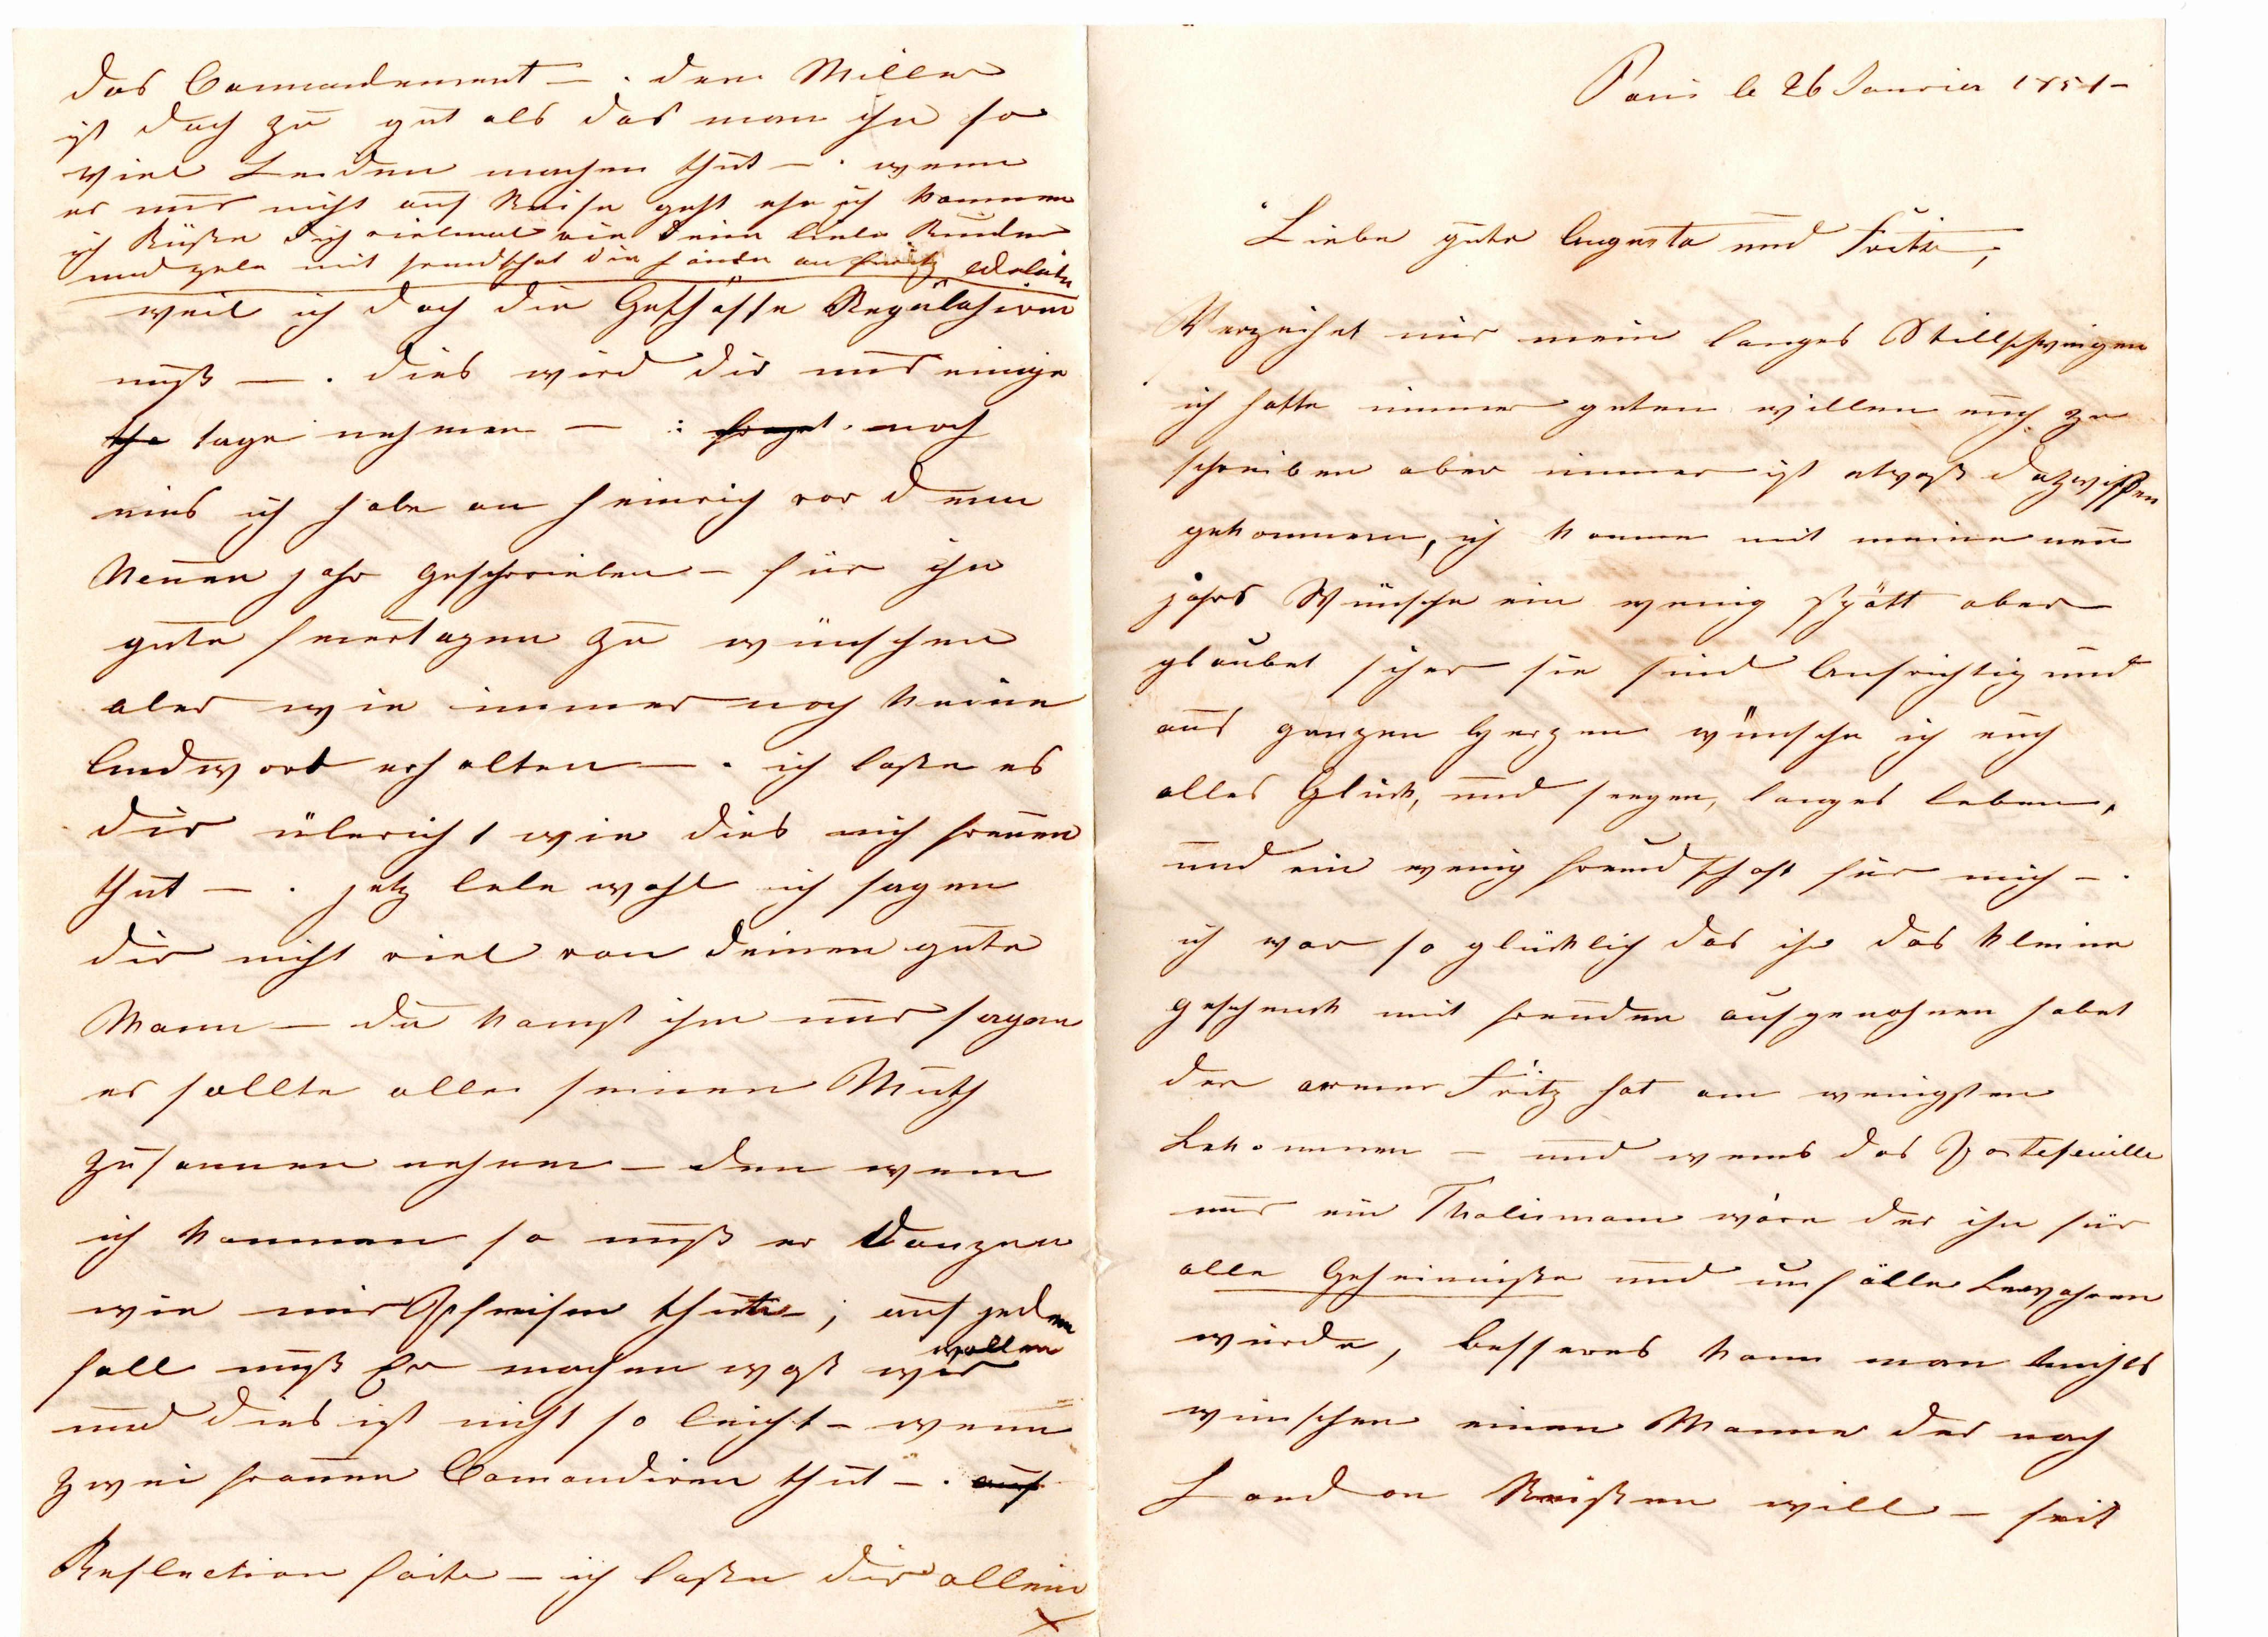 Paris le 26 Janvier 1851 –
Liebe gute Augusta und Fritz,
Verzeihet mir mein langes Stillschweigen
ich hatte immer guten willen euch zu
schreiben aber immer ist etwaß dazwischen
gekommen, ich komme mit meine neu
jahrs Wünsche ein wenig spätt aber
glaubet sicher sie sind Aufrichtig und
aus ganzen Herzen wünsche ich euch
alles Glück, und seegen, langes leben,
und ein wenig freundschaft für mich – .
ich war so glücklich das ihr das kleine
geschenk mit freuden aufgenohmen habet
der armer Fritz hat am wenigsten
bekommen – und wens das Portefeuille
nur ein Thalismann wäre der ihn für
alle Geheimniße und unfälle bewahren
würde, besseres kann man nichts
wünschen einen Manne der nach
London Reißen will – seit
das Commandement – . dem Miller
ist doch zu gut als das man ihn so
viel Leiden machen thut – . wenn
er nur nicht auf Reise geht ehe ich kommen
ich küßen dich vielmal wie deine liebe Kinder
und gebe mit freundschat die hände an Fritz
weil ich doch die Geschäffte Regulahiren
muß – . dies wird dir nur einige
tage nehmen – : noch
eins ich habe an Heinrich vor dem
Neuen jahr geschrieben – für ihn
gute feiertagen zu wünschen
aber wie immer noch keine
Andword erhalten – . ich laße es
dir überich wie dies mich freuen
thut – . jetz lebe wohl ich sagen
dir nicht viel von deinen gute
Mann – du kanst ihm nur sagen
er sollte alle seinen Muth
zusammen nehmen – den wenn
ich kommen so muß er Danzen
wie mir Pfeifen thute – ; auf jeden
fall muß Er machen waß wir wollen
und dies ist nicht so leicht – wenn
zwei frauen Comandiren thut – . auf
Reflection faite – ich laßen dir allein